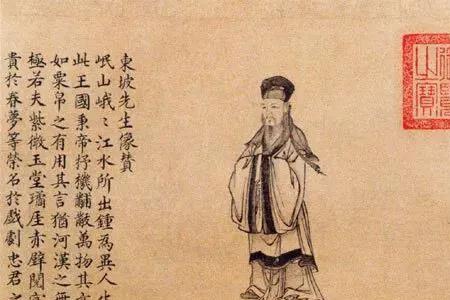 東坡先生像贊
岷山峨〻江水所出鍾為異人生
此王國秉帝杼機黼黻萬物其文
如粟帛之有用其言猶河漢之無
極若夫紫微玉堂瓊厓赤壁閱富
貴於春夢等榮名於戲劇忠君之
之寶